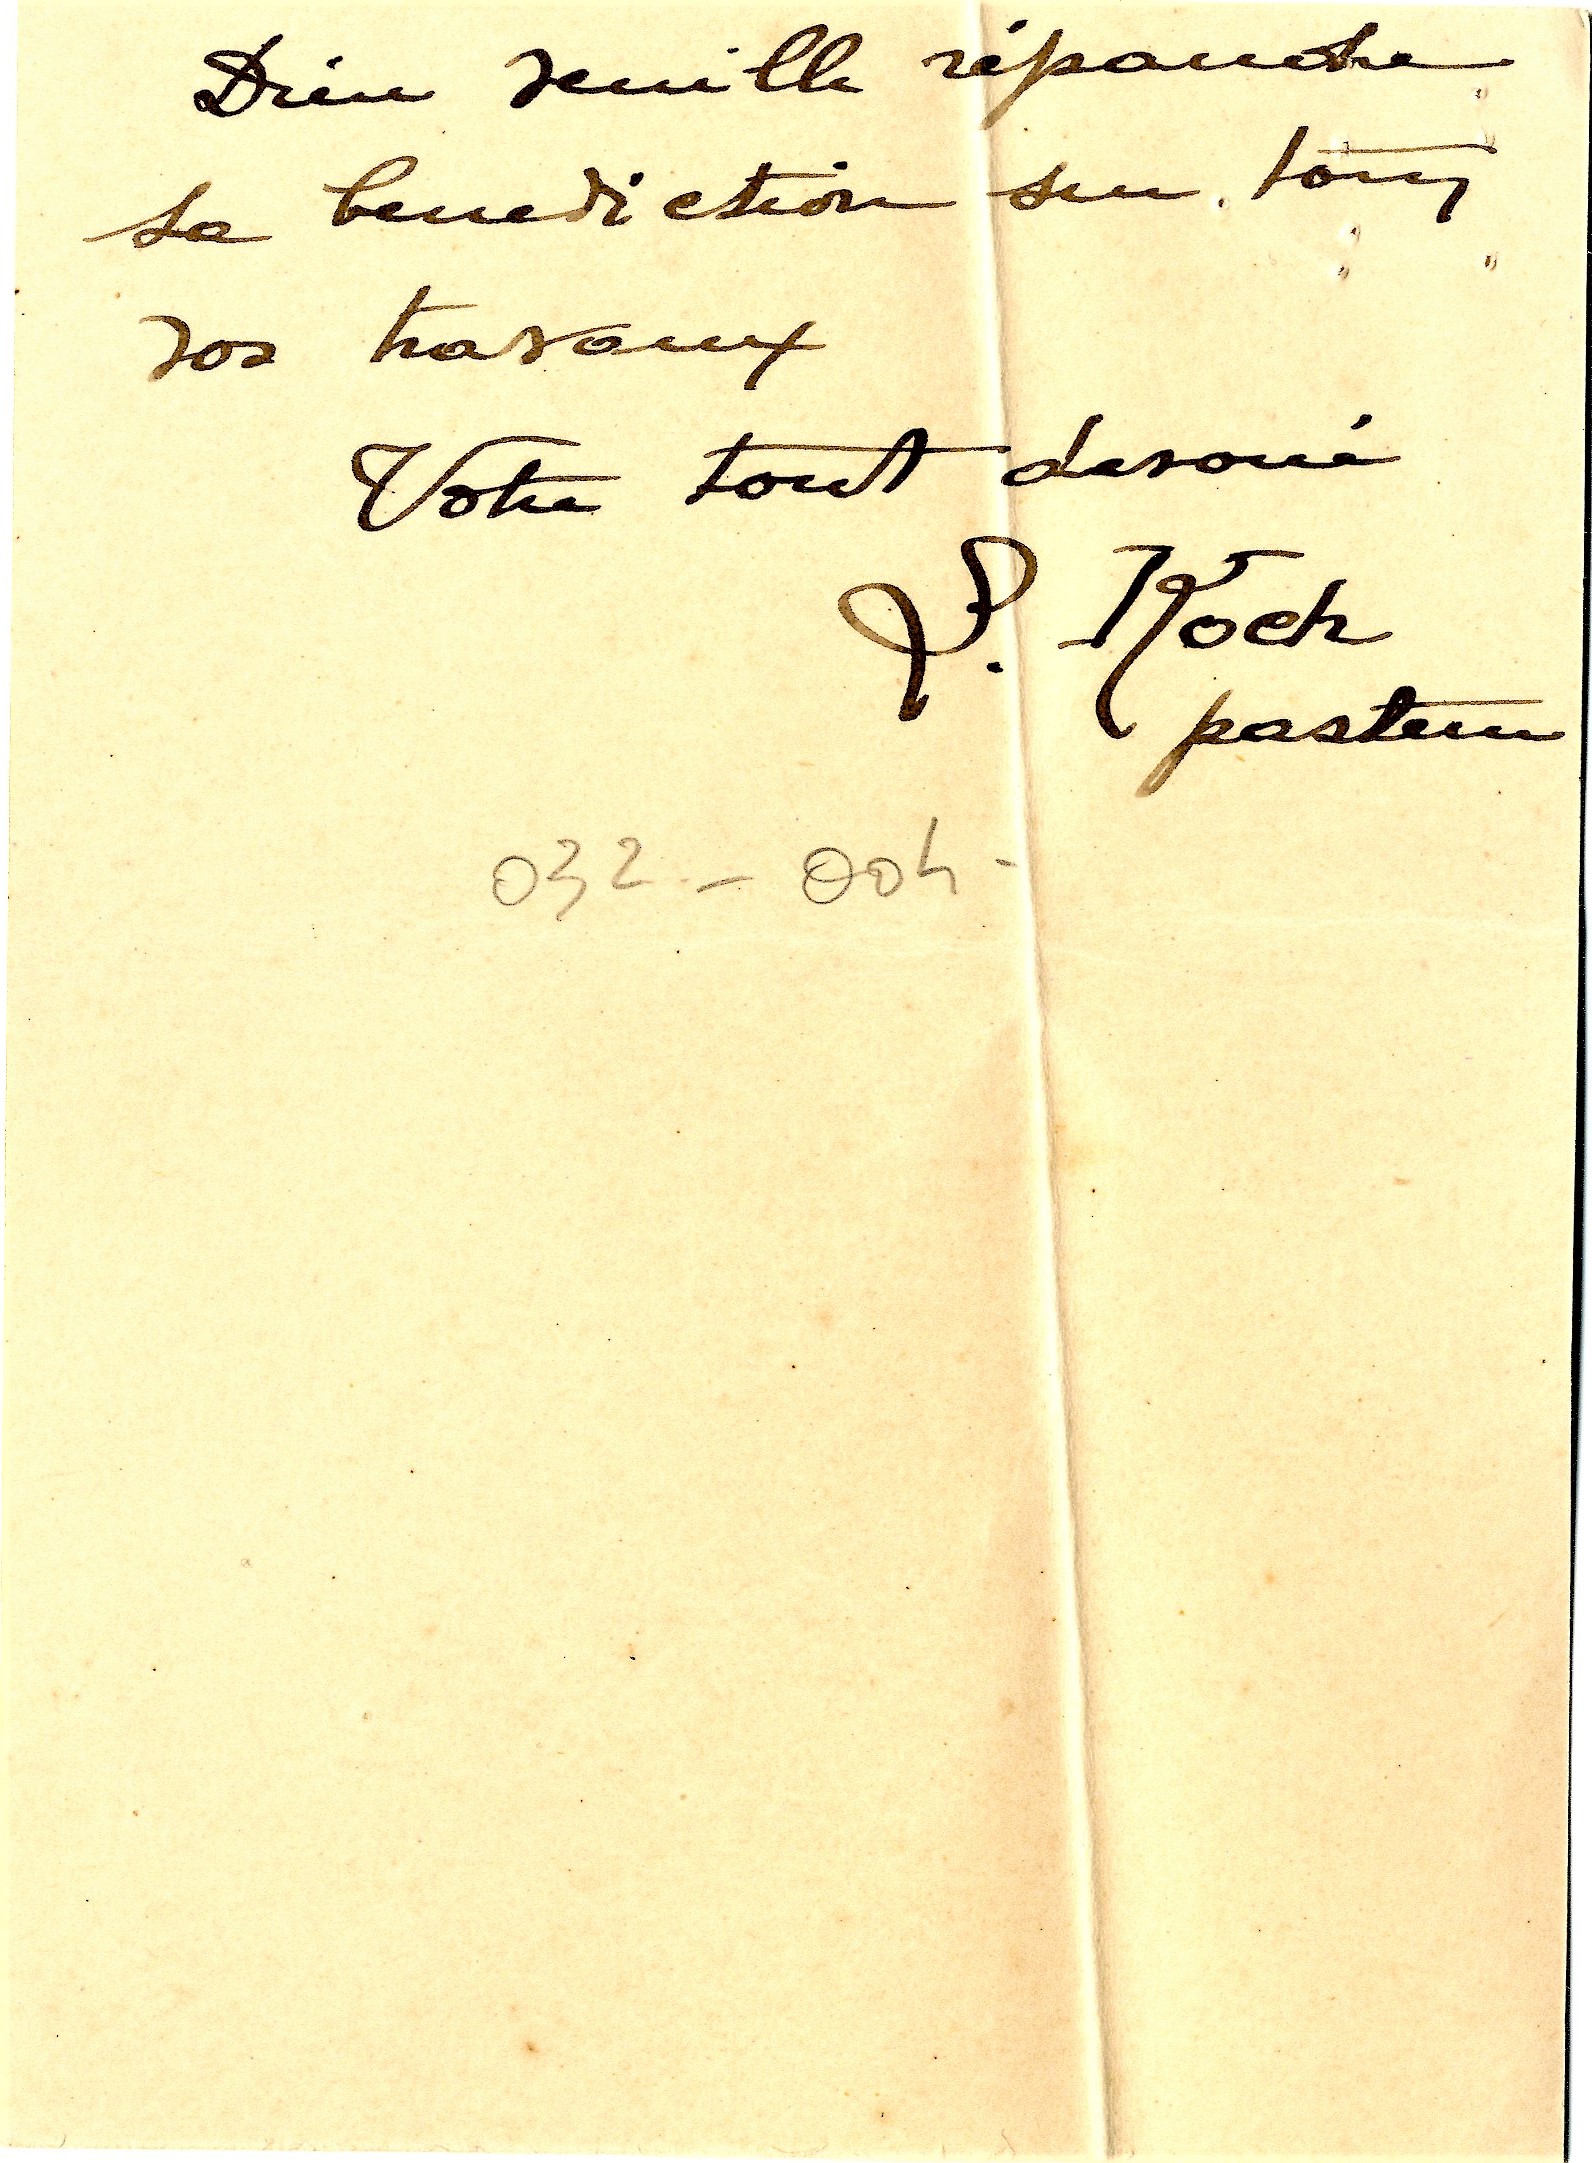 Dieu veuille répandre
sa benediction sur tous
vos travaux
Votre tout devoué
P. Koch
pasteur
032 - 004 -